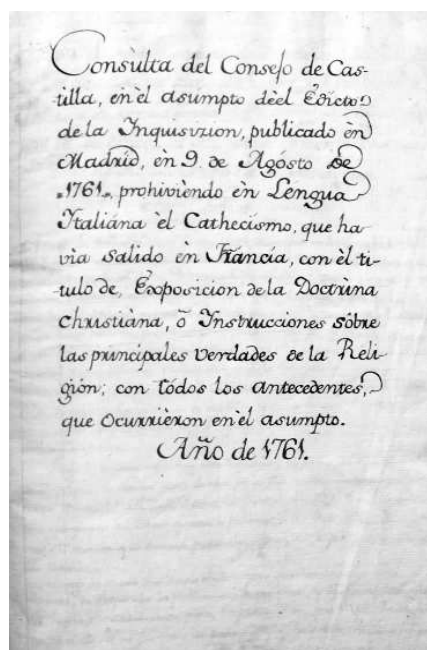 Consulta del Consejo de Cas-
tilla, en èl asumpto dèel Edicto
de la Inquisizion, publicado èn
Madrid, èn 9. de Agósto de
1761., prohiviendo èn Lengua
Italiána èl Cathecismo, que ha-
via salido èn Francia, con èl ti-
tulo de, Exposicion de la Doctrina
Christiàna, ò Instrucciones sòbre
las principales verdades de la Reli-
gión; con tòdos los antecedentes,
que ocurrieron en èl asumpto.
Año de 1761.